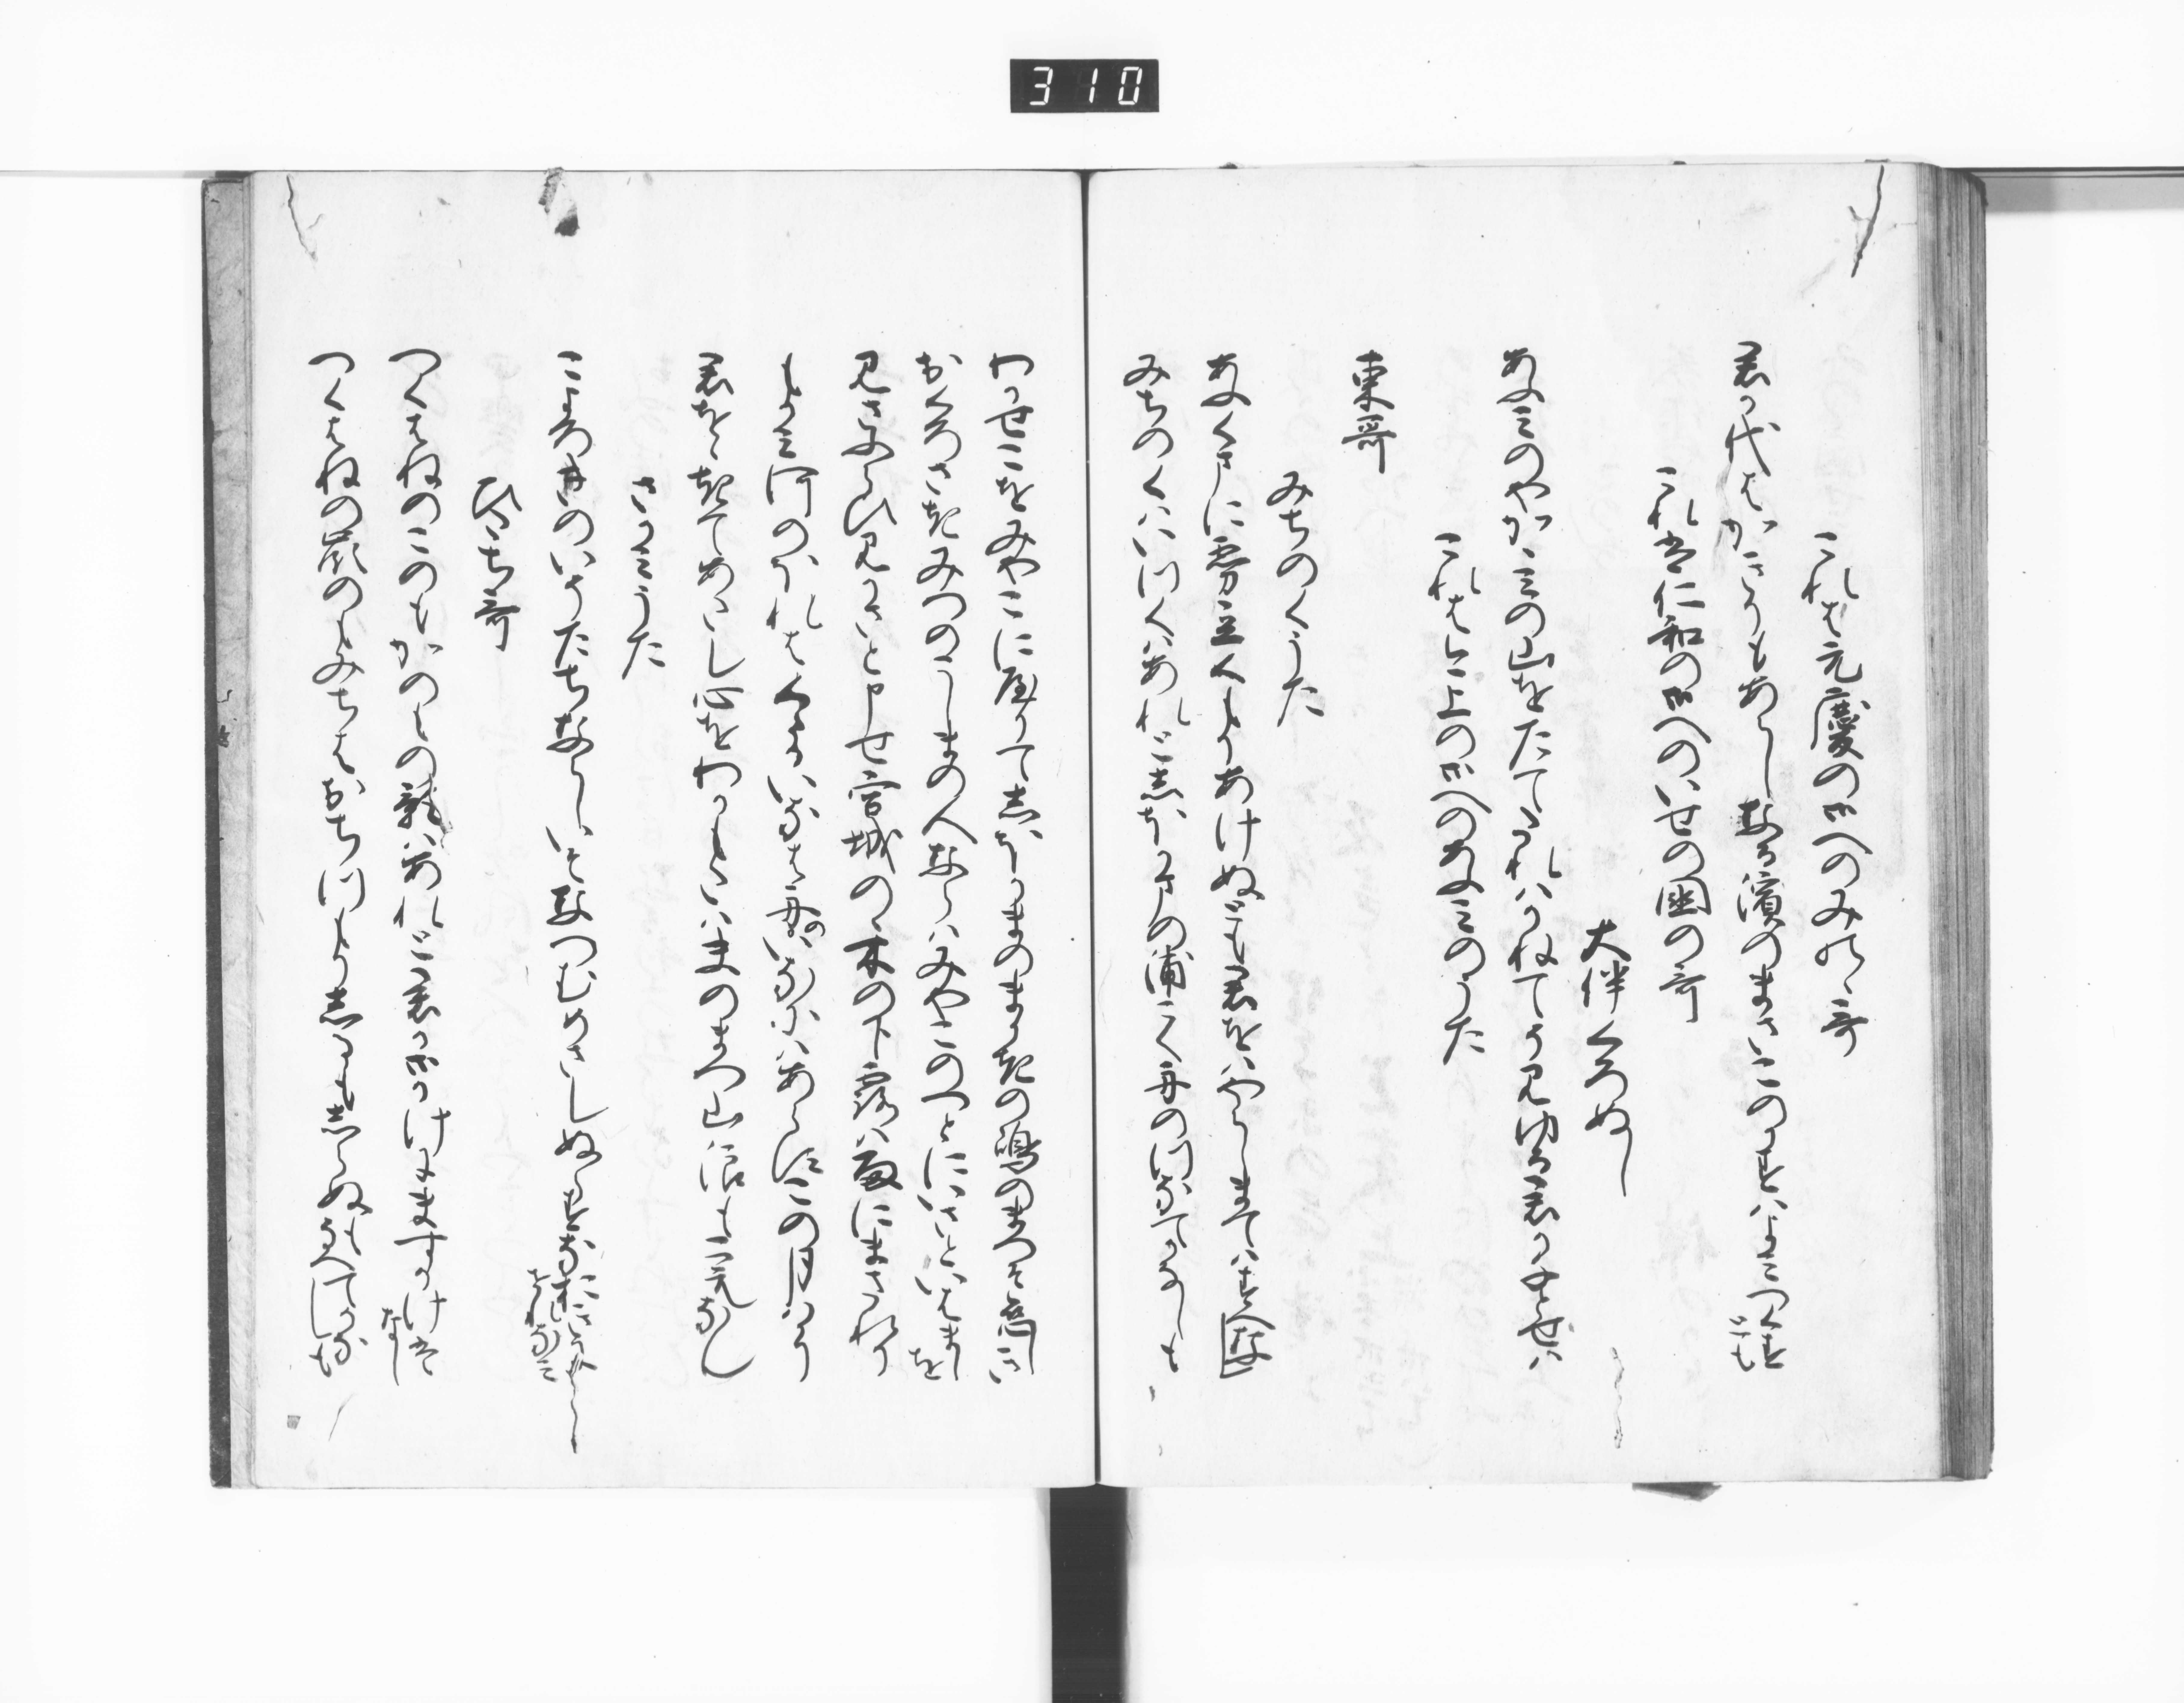 310
これは元慶の御へのみのゝ哥
君か代はかきりもあらしなか濱のまさこのかすはよみつくすとも
これは仁和の御へのいせの國の哥
大伴くろぬし
あふみのやかゝみの山をたてたれはかねてそ見ゆる君かちとせは
これは今上の御へのあふみのうた
東哥
みちのくうた
あふくまに霧立くもりあけぬとも君をはやらしまてはすへなし
みちのくはいつくはあれとしほかまの浦こく舟のつなてかなしも
わかせこをみやこにやりてしほかまのまかきの嶋のまつそ恋しき
おくろさきみつのこしまの人ならはみやこのつとにいさといはましを
みさふらひみかさと申せ宮城のゝ木の下露は雨にまされり
もかみ河のほれはくたるいな舟のいなにはあらすこの月はかり
君をゝきてあたし心をわかもたはすゑのまつ山浪もこえなん
さかみうた
こよろきのいそたちならしいそなつむめさしぬらすなおきにをれなみ
ひたち哥
つくはねのこのもかのもの影はあれと君か御かけにますかけはなし
つくはねの峯のもみちはおちつもりしるもしらぬもなへてかなしも